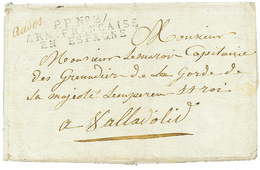 P.P.N°.27
ARM. FRANÇAISE
EN ESPAGNE
Monsieur
Monsieur Lemarois Capitaine
des Grenadiers de La Garde de
sa majesté Lempereur et roi
a Valladolid